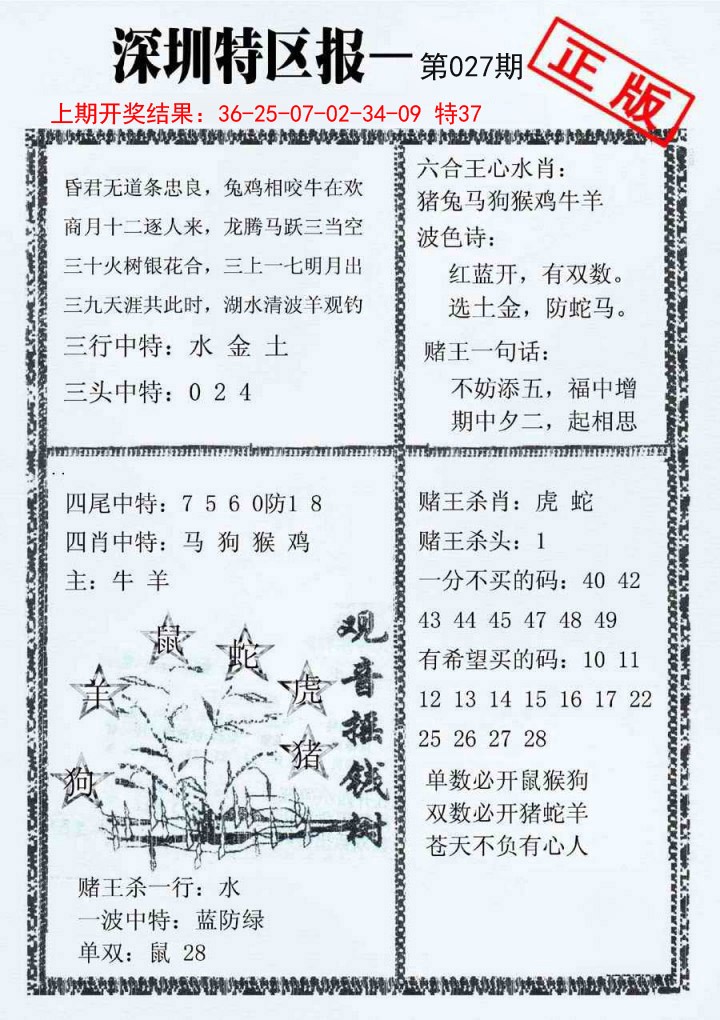 深圳特区报一
第027期
正版
上期开奖结果：36-25-07-02-34-09 特37
昏君无道条忠良，兔鸡相咬牛在欢
商月十二逐人来，龙腾马跃三当空
三十火树银花合，三上一七明月出
三九天涯共此时，湖水清波羊观钓
三行中特：水 金 土
三头中特：0 2 4
六合王心水肖：
猪兔马狗猴鸡牛羊
波色诗：
红蓝开，有双数。
选土金，防蛇马。
赌王一句话：
不妨添五，福中增
期中夕二，起相思
四尾中特：7 5 6 0防1 8
四肖中特：马 狗 猴 鸡
主：牛 羊
鼠
蛇
羊
虎
猪
狗
观音摇钱树
赌王杀一行：水
一波中特：蓝防绿
单双：鼠 28
赌王杀肖：虎 蛇
赌王杀头：1
一分不买的码：40 42
43 44 45 47 48 49
有希望买的码：10 11
12 13 14 15 16 17 22
25 26 27 28
单数必开鼠猴狗
双数必开猪蛇羊
苍天不负有心人